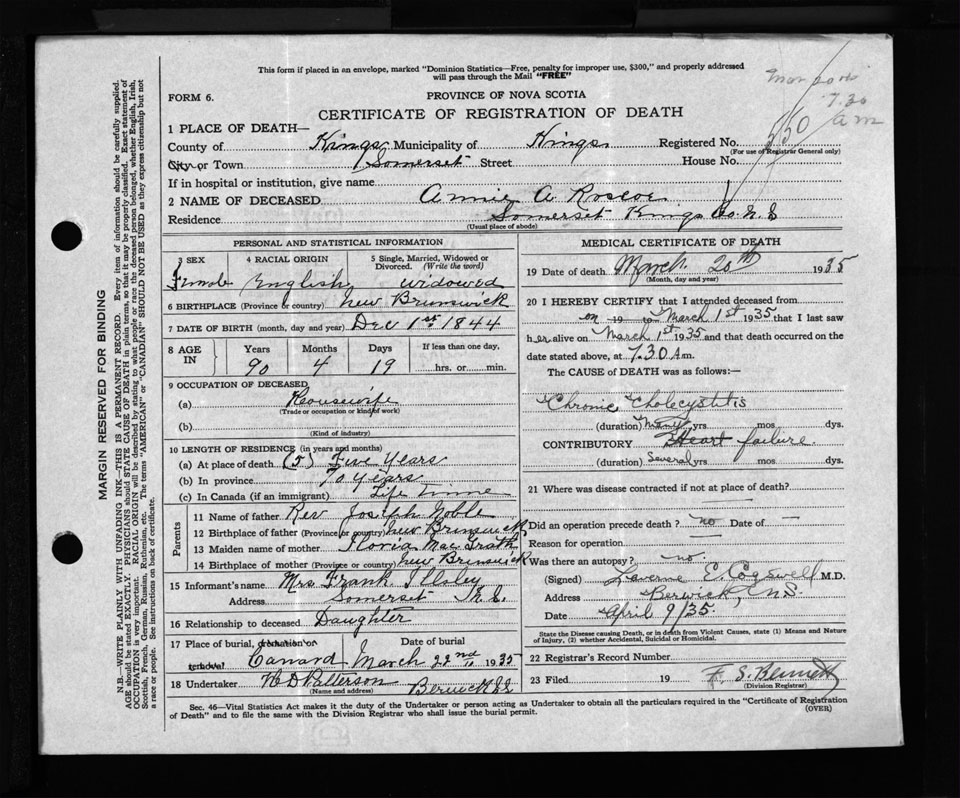 This form if placed in an envelope, marked "Dominion Statistics—Free, penalty for improper use, $300," and properly addressed
will pass through the Mail "FREE"
FORM 6.
PROVINCE OF NOVA SCOTIA
7.30
a m
CERTIFICATE OF REGISTRATION OF DEATH
1 PLACE OF DEATH—
County of Kings Municipality of Kings Registered No. 550
(For use of Registrar General only)
City or Town Somerset Street House No.
If in hospital or institution, give name
2 NAME OF DECEASED Annie A. Roscoe
Residence Somerset Kings Co. N.S
(Usual place of abode)
PERSONAL AND STATISTICAL INFORMATION
3 SEX 4 RACIAL ORIGIN 5 Single, Married, Widowed or Divorced. (Write the word)
Female English widowed
6 BIRTHPLACE (Province or country) New Brunswick
7 DATE OF BIRTH (month, day and year) Dec 1st 1844
8 AGE IN Years Months Days If less than one day,
90 4 19 hrs. or min.
9 OCCUPATION OF DECEASED
(a) Housewife
(Trade or occupation or kind of work)
(b)
(Kind of industry)
10 LENGTH OF RESIDENCE (in years and months)
(a) At place of death (5) Five Years
(b) In province 70 years
(c) In Canada (if an immigrant) Life Time
Parents
11 Name of father Rev Joseph Noble
12 Birthplace of father (Province or country) New Brunswick
13 Maiden name of mother Floria MacGrath
14 Birthplace of mother (Province or country) New Brunswick
15 Informant's name Mrs. Frank Illsley
Address Somerset N.S.
16 Relationship to deceased Daughter
17 Place of burial, cremation or removal Date of burial
Canard March 22nd 1935
18 Undertaker W D Patterson Berwick N.S
(Name and address)
MEDICAL CERTIFICATE OF DEATH
19 Date of death March 20th 1935
(Month, day and year)
20 I HEREBY CERTIFY that I attended deceased from
on 19 to March 1st 1935 that I last saw
her alive on March 1st 1935 and that death occurred on the
date stated above, at 7.30 A.m.
The CAUSE of DEATH was as follows:—
Chronic Cholecystitis
(duration) Many yrs mos dys.
CONTRIBUTORY Heart failure
(duration) Several yrs mos dys.
21 Where was disease contracted if not at place of death?
Did an operation precede death? no Date of —
Reason for operation —
Was there an autopsy? no.
(Signed) Laverne E. Cogswell M.D.
Address Berwick, N.S.
Date April 9/35.
State the Disease causing Death, or in death from Violent Causes, state (1) Means and Nature
of Injury, (2) whether Accidental, Suicidal or Homicidal.
22 Registrar's Record Number
23 Filed 19 F. S. Bennett
(Division Registrar)
Sec. 46—Vital Statistics Act makes it the duty of the Undertaker or person acting as Undertaker to obtain all the particulars required in the "Certificate of Registration
of Death" and to file the same with the Division Registrar who shall issue the burial permit.
(OVER)
MARGIN RESERVED FOR BINDING
N.B.—WRITE PLAINLY WITH UNFADING INK—THIS IS A PERMANENT RECORD. Every item of information should be carefully supplied.
AGE should be stated EXACTLY. PHYSICIANS should STATE CAUSE OF DEATH in plain terms, so that it may be properly classified. Exact statement of
OCCUPATION is very important. RACIAL ORIGIN will be described by stating to what people or race the deceased person belonged, whether English, Irish,
Scottish, French, German, Russian, Ruthenian, etc. The terms "AMERICAN" or "CANADIAN" SHOULD NOT BE USED as they express citizenship but not
a race or people. See instructions on back of certificate.